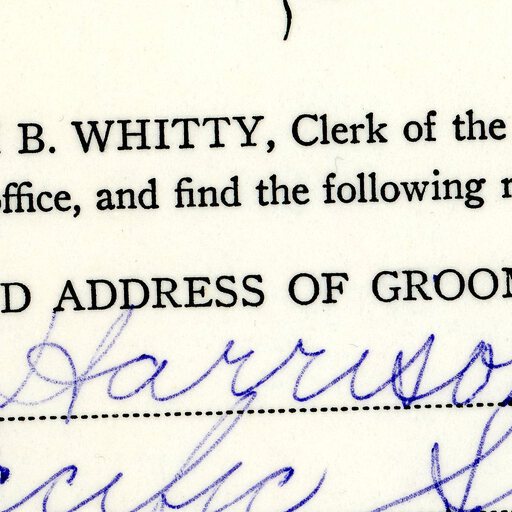 B. WHITTY, Clerk of the
office, and find the following
D ADDRESS OF GROOM
Harrison